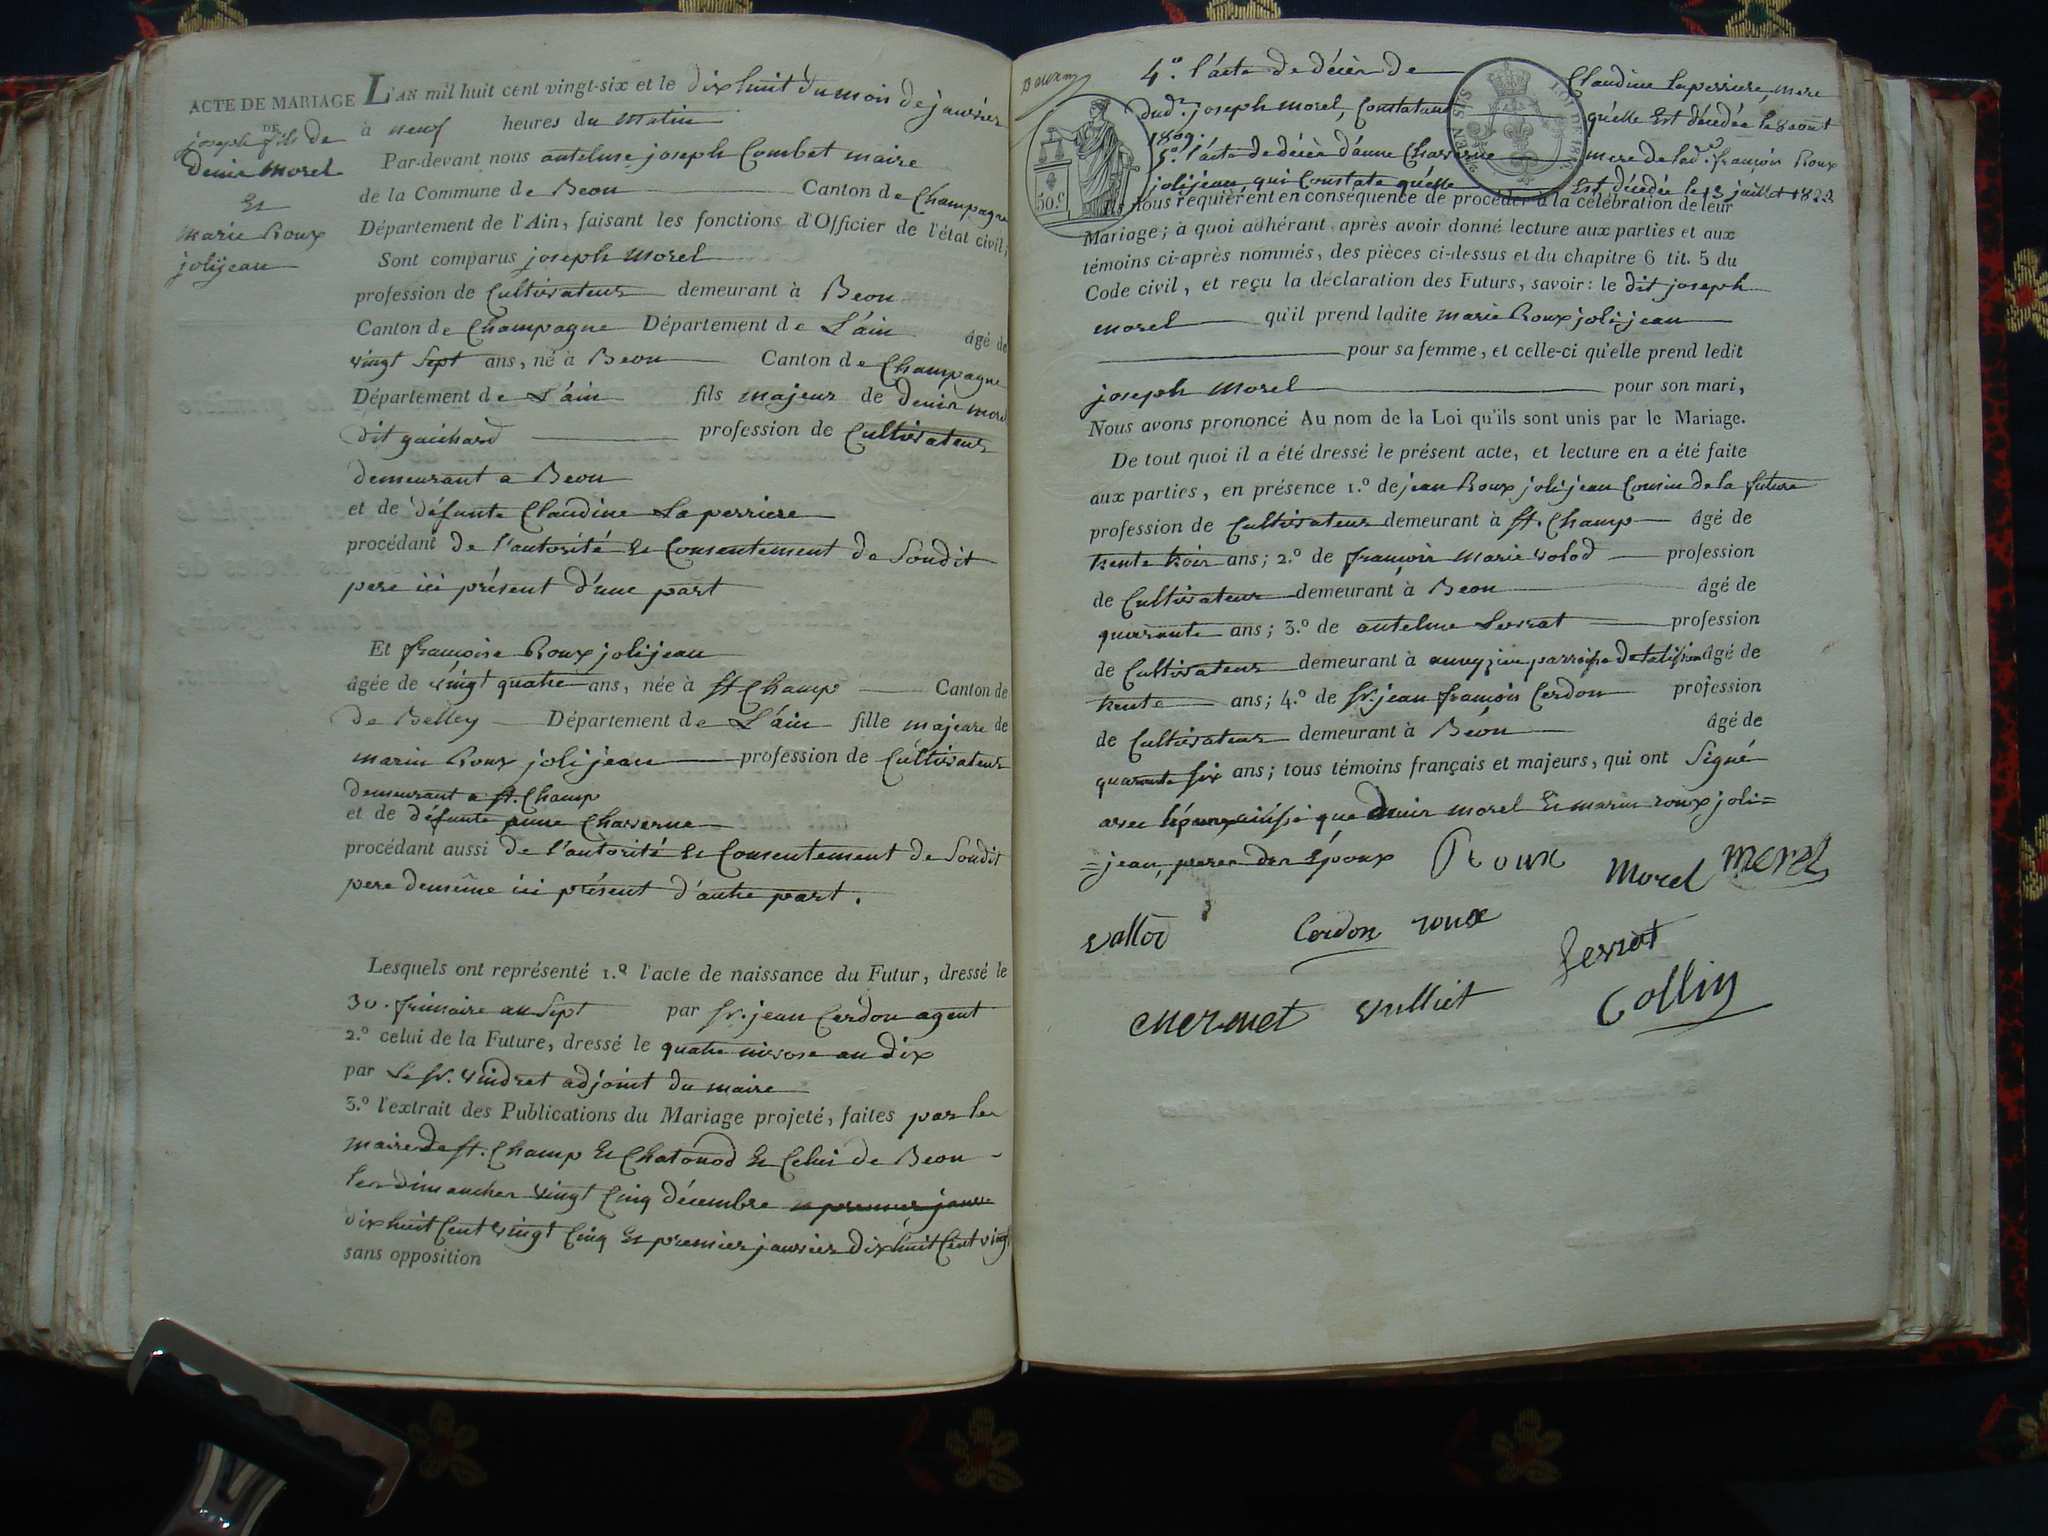 ACTE DE MARIAGE
DE
joseph fils de
Denis morel
Et
marie Roux
jolijean
L'AN mil huit cent vingt-six et le dix huit du mois de janvier
à neuf heures du matin
Par-devant nous antelme joseph Combet maire
de la Commune de Beon Canton de Champagne
Département de l'Ain, faisant les fonctions d'Officier de l'état civil,
Sont comparus joseph morel
profession de Cultivateur demeurant à Beon
Canton de Champagne Département de L'ain âgé de
vingt Sept ans, né à Beon Canton de Champagne
Département de L'ain fils majeur de Denis morel
dit guichard profession de Cultivateur
demeurant a Beon
et de défunte Claudine Laperriere
procédant de l'autorité Et Consentement de Sondit
pere ici présent d'une part
Et françoise Roux jolijean
âgée de vingt quatre ans, née à St Champ Canton de
de Belley Département de L'ain fille majeure de
marin Roux jolijean profession de Cultivateur
demeurant a St. Champ
et de défunte anne Chaverne
procédant aussi de l'autorité Et Consentement de Sondit
pere demême ici présent d'autre part.
Lesquels ont représenté 1.º l'acte de naissance du Futur, dressé le
30. frimaire an Sept par Sr. jean Cerdon agent
2.º celui de la Future, dressé le quatre nivose an dix
par Le Sr. vindret adjoint du maire
3.º l'extrait des Publications du Mariage projeté, faites par les
maire de St. Champ Et Chatonod Et Celui de Beon
les dimanches vingt Cinq décembre et premier janvr
dix huit Cent vingt Cinq Et premier janvier dix huit Cent vingt
sans opposition
4.º l'acte de décès de Claudine Laperriere, mere
dud.t joseph morel, Constatant qu'elle Est décédée le 8 aout
1809.
5.º l'acte de décès d'anne Chaverne mere de lad.e françoise Roux
jolijean qui Constate qu'elle Est décédée le 13 juillet 1823.
50.C
LOI DE 1816
Ils nous requièrent en conséquence de procéder à la célébration de leur
Mariage; à quoi adhérant, après avoir donné lecture aux parties et aux
témoins ci-après nommés, des pièces ci-dessus et du chapitre 6 tit. 5 du
Code civil, et reçu la déclaration des Futurs, savoir: le dit joseph
morel qu'il prend ladite marie Roux jolijean
pour sa femme, et celle-ci qu'elle prend ledit
joseph morel pour son mari,
Nous avons prononcé Au nom de la Loi qu'ils sont unis par le Mariage.
De tout quoi il a été dressé le présent acte, et lecture en a été faite
aux parties, en présence 1.º de jean Roux jolijean Cousin de la future
profession de Cultivateur demeurant à St. Champ âgé de
trente trois ans; 2.º de françois marie valod profession
de Cultivateur demeurant à Beon âgé de
quarante ans; 3.º de antelme Serrat profession
de Cultivateur demeurant à parroisse de talissieu âgé de
trente ans; 4.º de Sr. jean françois Cerdon profession
de Cultivateur demeurant à Béon âgé de
quarante Six ans; tous témoins français et majeurs, qui ont Signé
avec L'époux ainsi que Denis morel Et marin roux joli=
=jean, peres des Époux Roux Morel Morel
vallod Cerdon roux Serrat
mermet vulliet Collin